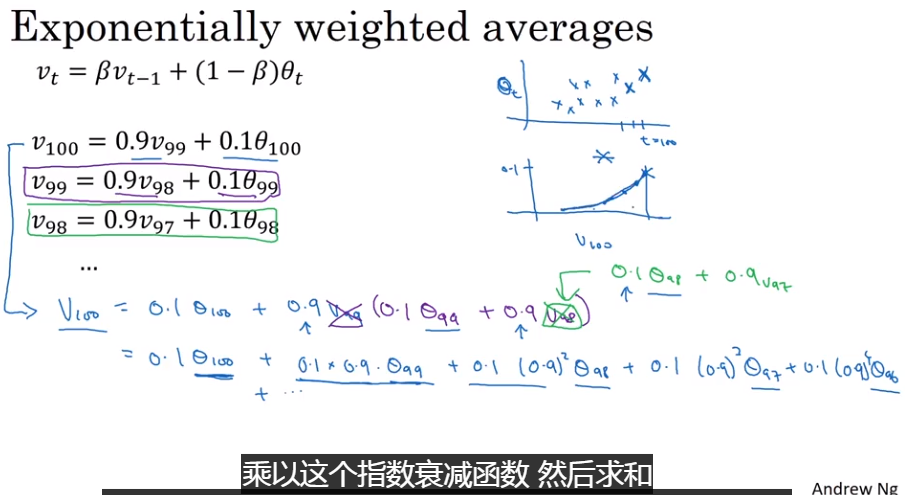 Exponentially weighted averages
vₜ = βvₜ₋₁ + (1 − β)θₜ
θₜ
t=100
v₁₀₀ = 0.9v₉₉ + 0.1θ₁₀₀
v₉₉ = 0.9v₉₈ + 0.1θ₉₉
v₉₈ = 0.9v₉₇ + 0.1θ₉₈
...
0.1
V₁₀₀
0.1 θ₉₈ + 0.9 v₉₇
V₁₀₀ = 0.1 θ₁₀₀ + 0.9 v₉₉ (0.1 θ₉₉ + 0.9 v₉₈)
= 0.1 θ₁₀₀ + 0.1 × 0.9 · θ₉₉ + 0.1 (0.9)² θ₉₈ + 0.1 (0.9)³ θ₉₇ + 0.1 (0.9)⁴ θ₉₆
+ ...
乘以这个指数衰减函数 然后求和
Andrew Ng